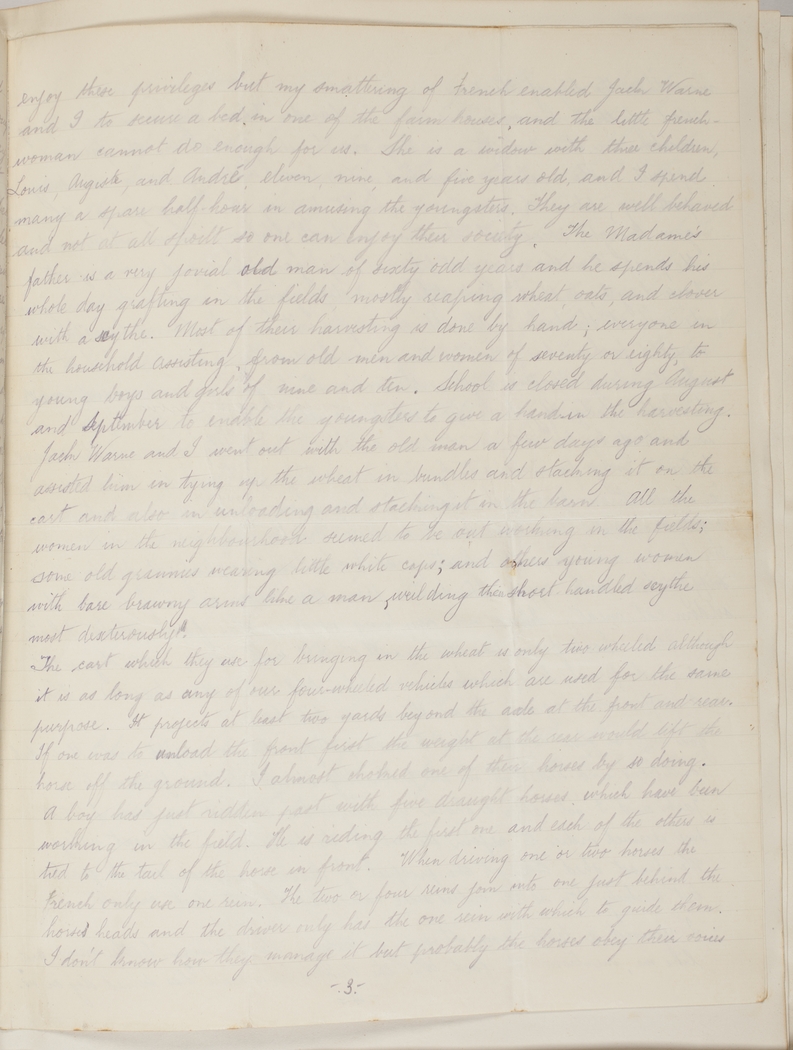 enjoy these privileges but my smattering of French enabled Jack Warne
and I to secure a bed in one of the farm houses, and the little french-
woman cannot do enough for us. She is a widow with three children,
Louis, Auguste, and André, eleven, nine, and five years old, and I spend
many a spare half-hour in amusing the youngsters. They are well behaved
and not at all spoilt so one can enjoy their society. The Madame's
father is a very jovial old man of sixty odd years and he spends his
whole day grafting in the fields mostly reaping wheat, oats, and clover
with a scythe. Most of their harvesting is done by hand; everyone in
the household assisting, from old men and women of seventy or eighty, to
young boys and girls of nine and ten. School is closed during August
and September to enable the youngsters to give a hand in the harvesting.
Jack Warne and I went out with the old man a few days ago and
assisted him in tying up the wheat in bundles and stacking it on the
cart and also in unloading and stacking it in the barn. All the
women in the neighbourhood seemed to be out working in the fields;
some old grannies wearing little white caps; and others young women
with bare brawny arms like a man, weilding the short handled scythe
most dexterously.
The cart which they use for bringing in the wheat is only two wheeled although
it is as long as any of our four-wheeled vehicles which are used for the same
purpose. It projects at least two yards beyond the axle at the front and rear.
If one was to unload the front first the weight at the rear would lift the
horse off the ground. I almost choked one of their horses by so doing.
A boy has just ridden past with five draught horses, which have been
working in the field. He is riding the first one and each of the others is
tied to the tail of the horse in front. When driving one or two horses the
French only use one rein. The two or four reins join into one just behind the
horses heads and the driver only has the one rein with which to guide them.
I don't know how they manage it but probably the horses obey their voices
-3-